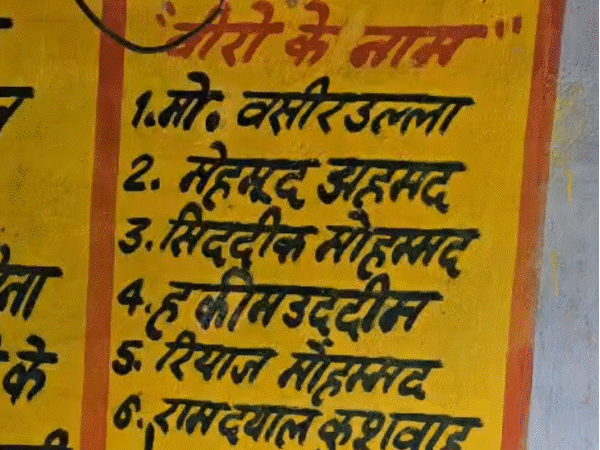 "वीरो के नाम"
1. मो. वसीरउल्ला
2. मेहमूद अहमद
3. सिददीक मोहम्मद
4. हकीमउददीन
5. रियाज मोहम्मद
6. रामदयाल कुशवाह
के